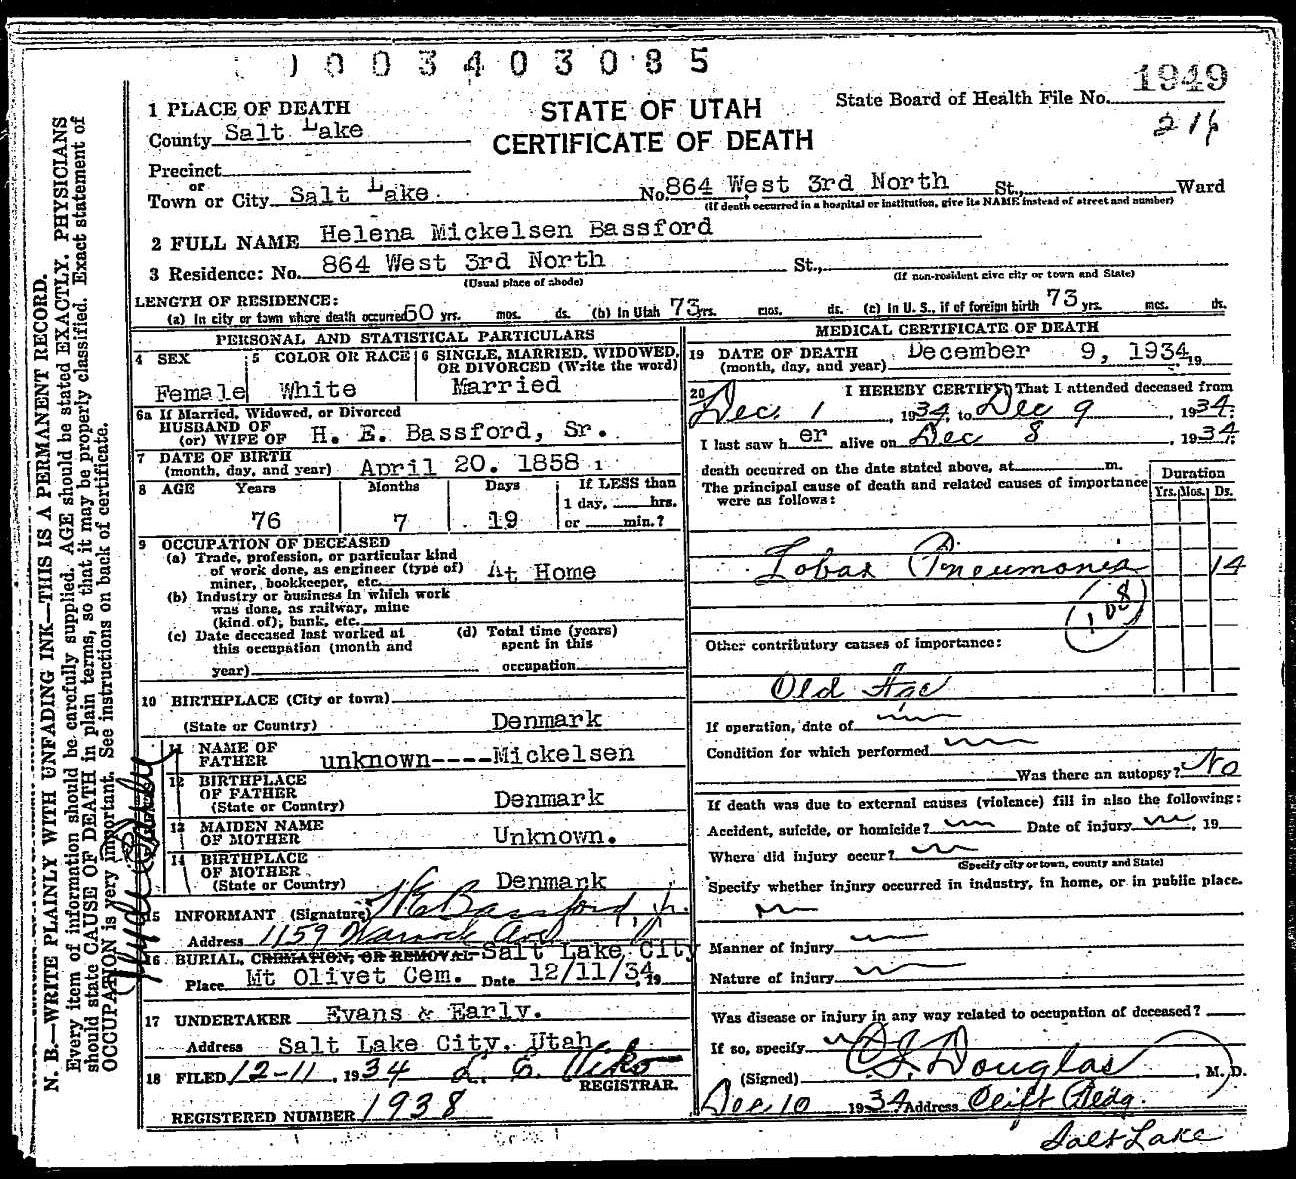 1003403085
1949
State Board of Health File No.
216
STATE OF UTAH
CERTIFICATE OF DEATH
1 PLACE OF DEATH
County Salt Lake
Precinct
or
Town or City Salt Lake. No. 864 West 3rd North St., Ward
(If death occurred in a hospital or institution, give its NAME instead of street and number)
2 FULL NAME Helena Mickelsen Bassford
3 Residence: No. 864 West 3rd North St.,
(Usual place of abode) (If non-resident give city or town and State)
LENGTH OF RESIDENCE:
(a) In city or town where death occurred 50 yrs. mos. ds. (b) In Utah 73 yrs. mos. ds. (c) In U. S., if of foreign birth 73 yrs. mos. ds.
PERSONAL AND STATISTICAL PARTICULARS
4 SEX Female
5 COLOR OR RACE White
6 SINGLE, MARRIED, WIDOWED, OR DIVORCED (Write the word) Married
6a If Married, Widowed, or Divorced
HUSBAND OF
(or) WIFE OF H. E. Bassford, Sr.
7 DATE OF BIRTH
(month, day, and year) April 20. 1858
8 AGE Years Months Days If LESS than
1 day, hrs.
76 7 19 or min.?
9 OCCUPATION OF DECEASED
(a) Trade, profession, or particular kind
of work done, as engineer (type of)
miner, bookkeeper, etc. At Home
(b) Industry or business in which work
was done, as railway, mine
(kind of); bank, etc.
(c) Date deceased last worked at
this occupation (month and
year)
(d) Total time (years)
spent in this
occupation
10 BIRTHPLACE (City or town)
(State or Country) Denmark
11 NAME OF
FATHER unknown----Mickelsen
12 BIRTHPLACE
OF FATHER
(State or Country) Denmark
13 MAIDEN NAME
OF MOTHER Unknown.
14 BIRTHPLACE
OF MOTHER
(State or Country) Denmark
15 INFORMANT (Signature) H E Bassford, Jr.
Address 1159 Ave
16 BURIAL, CREMATION, OR REMOVAL Salt Lake City
Place Mt Olivet Cem. Date 12/11/34, 19
17 UNDERTAKER Evans & Early.
Address Salt Lake City, Utah
18 FILED 12-11, 1934 L. E.
REGISTRAR.
REGISTERED NUMBER 1938
MEDICAL CERTIFICATE OF DEATH
19 DATE OF DEATH
(month, day, and year) December 9, 1934 19
20 I HEREBY CERTIFY, That I attended deceased from
Dec. 1, 1934, to Dec 9, 1934.
I last saw her alive on Dec 8, 1934.
death occurred on the date stated above, at m.
The principal cause of death and related causes of importance
were as follows:
Duration
Yrs. Mos. Ds.
Lobar Pneumonia 14
108
Other contributory causes of importance:
Old Age
If operation, date of
Condition for which performed
Was there an autopsy? No
If death was due to external causes (violence) fill in also the following:
Accident, suicide, or homicide? Date of injury , 19
Where did injury occur?
(Specify city or town, county and State)
Specify whether injury occurred in industry, in home, or in public place.
Manner of injury
Nature of injury
Was disease or injury in any way related to occupation of deceased?
If so, specify
(Signed) Douglas, M. D.
Dec 10 1934 Address Clift Bldg.
Salt Lake
N. B.—WRITE PLAINLY WITH UNFADING INK—THIS IS A PERMANENT RECORD.
Every item of information should be carefully supplied. AGE should be stated EXACTLY. PHYSICIANS
should state CAUSE OF DEATH in plain terms, so that it may be properly classified. Exact statement of
OCCUPATION is very important. See instructions on back of certificate.